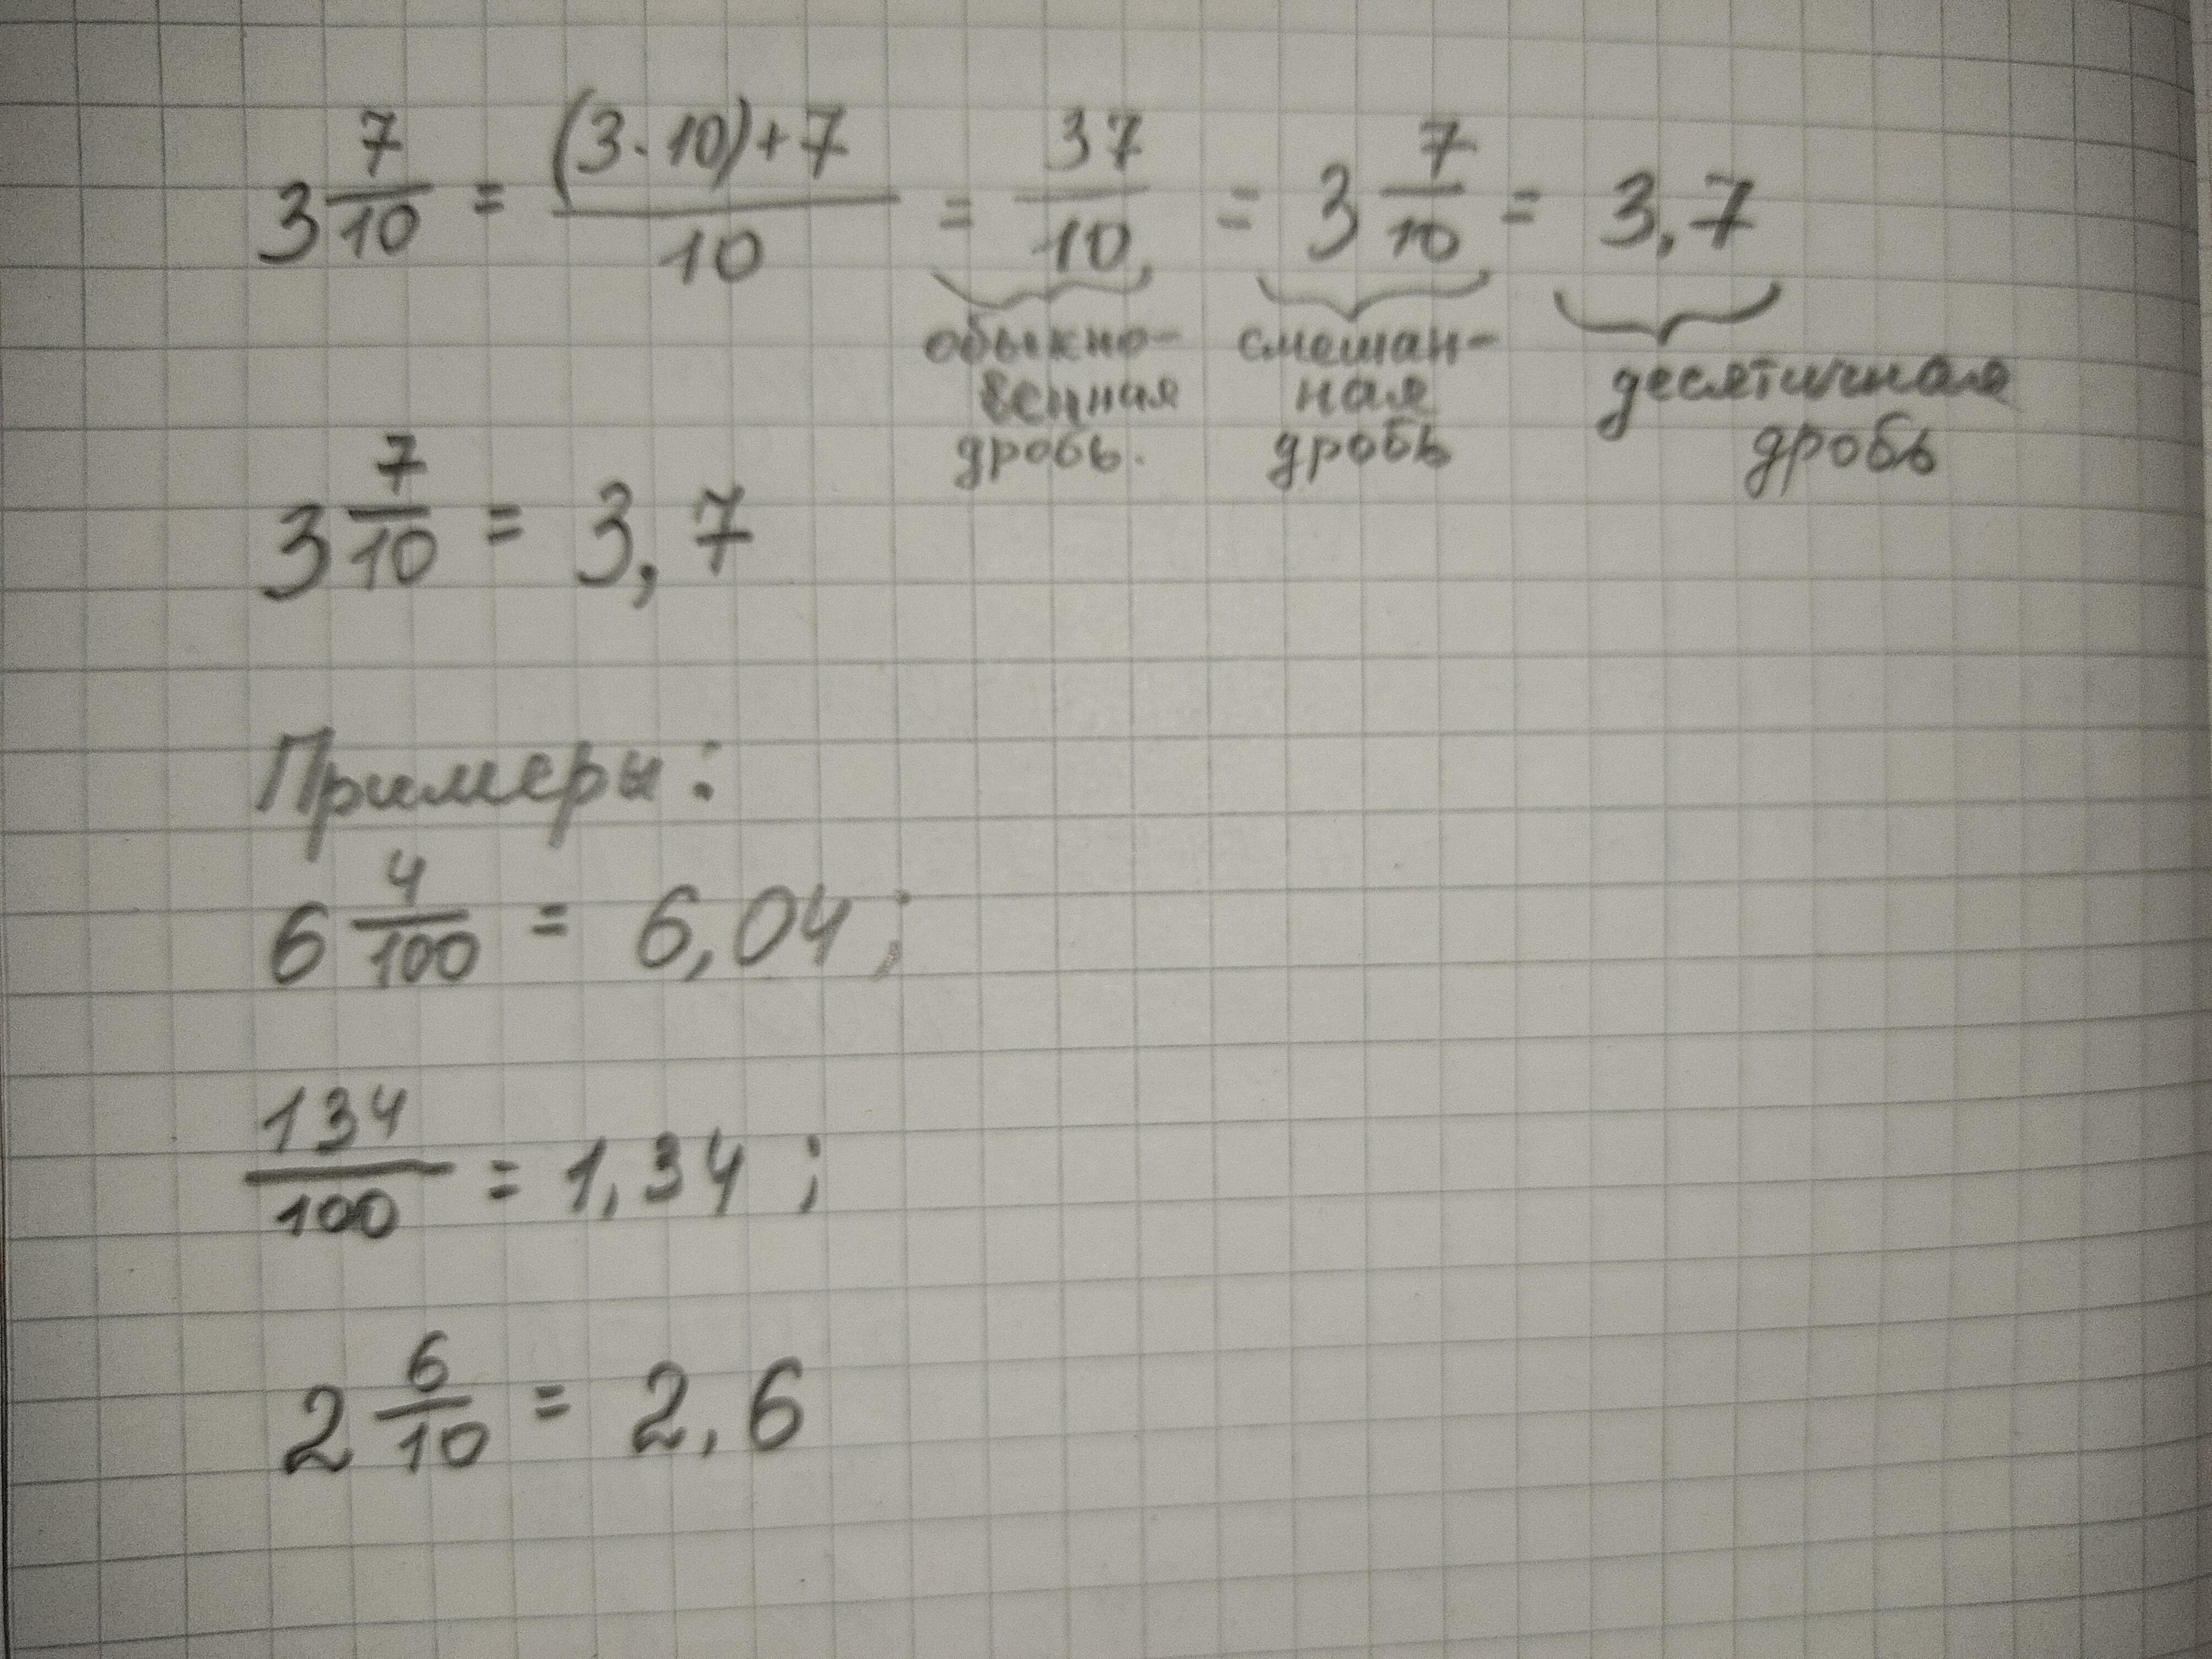 3 7/10 = (3·10)+7/10 = 37/10, = 3 7/10 = 3,7
обыкно-
венная
дробь.
смешан-
ная
дробь
десятичная
дробь
3 7/10 = 3,7
Примеры:
6 4/100 = 6,04;
134/100 = 1,34;
2 6/10 = 2,6